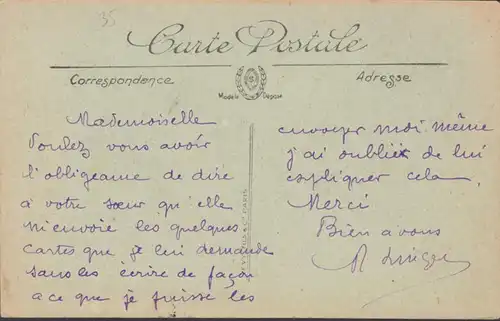 35
Carte Postale
Correspondence
Adresse
Modèle Déposé
Mademoiselle
Voulez vous avoir
l'obligeance de dire
à votre sœur qu'elle
m'envoie les quelques
cartes que je lui demande
sans les écrire de façon
a ce que je puisse les
envoyer moi même
j'ai oublier de lui
expliquer cela.
Merci
Bien a vous